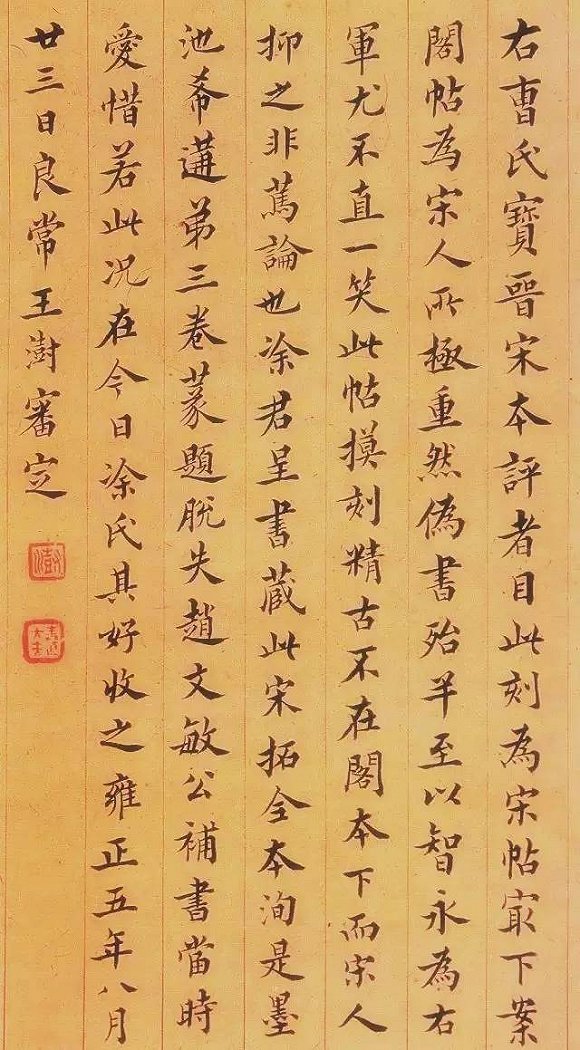 右曹氏寶晉宋本評者目此刻為宋帖冣下案
閣帖為宋人所極重然偽書殆半至以智永為右
軍尤不直一笑此帖摸刻精古不在閣本下而宋人
抑之非篤論也涂君呈書蔵此宋拓全本洵是墨
池希遘弟三卷篆題脫失趙文敏公補書當時
愛惜若此况在今日涂氏其好收之雍正五年八月
廿三日良常王澍審定
澍